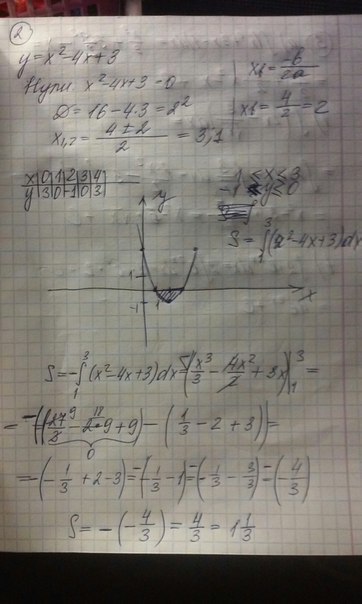 2
y=x²-4x+3
Нули x²-4x+3=0
D=16-4·3=2²
x₁,₂=(4±2)/2=3,1
xв=-b/2a
xв=4/2=2
x|0|1|2|3|4
y|3|0|-1|0|3
1≤x≤3
-1≤y≤0
S=∫₁³(x²-4x+3)dx
y
1
-1
1
x
S=-∫₁³(x²-4x+3)dx=-(x³/3-4x²/2+3x)|₁³=
=-((27/3-2·9+9)-(1/3-2+3))=
0
=-(-1/3+2-3)=-(-1/3-1)=-(-1/3-3/3)=-(-4/3)
S=-(-4/3)=4/3=1 1/3